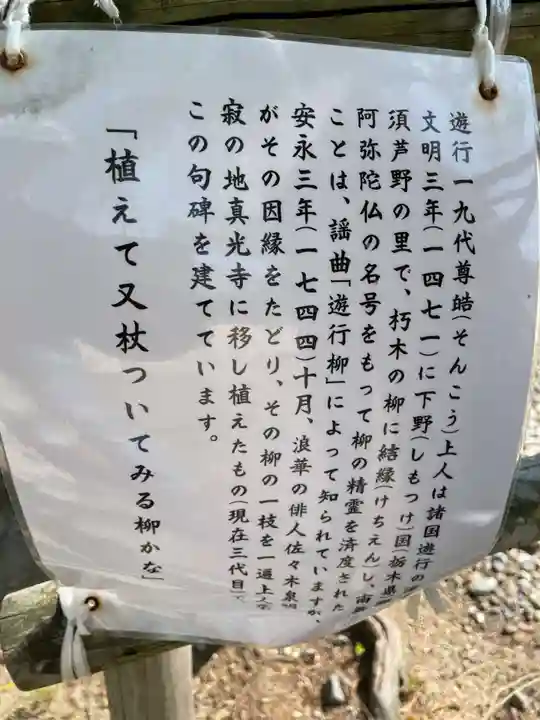 遊行一九代尊皓(そんこう)上人は諸国遊行の
文明三年(一四七一)に下野(しもつけ)国(栃木県
須芦野の里で、朽木の柳に結縁(けちえんし、宙
阿弥陀仏の名号をもって柳の精霊を済度された
ことは、謡曲「遊行柳」によって知られていますが、
安永三年(一七四四)十月、浪華の俳人佐々木泉明
がその因縁をたどり、その柳の一枝を一遍上人
寂の地真光寺に移し植えたもの(現在三代目)で、
この句碑を建てています。
「植えて又杖ついてみる柳かな」